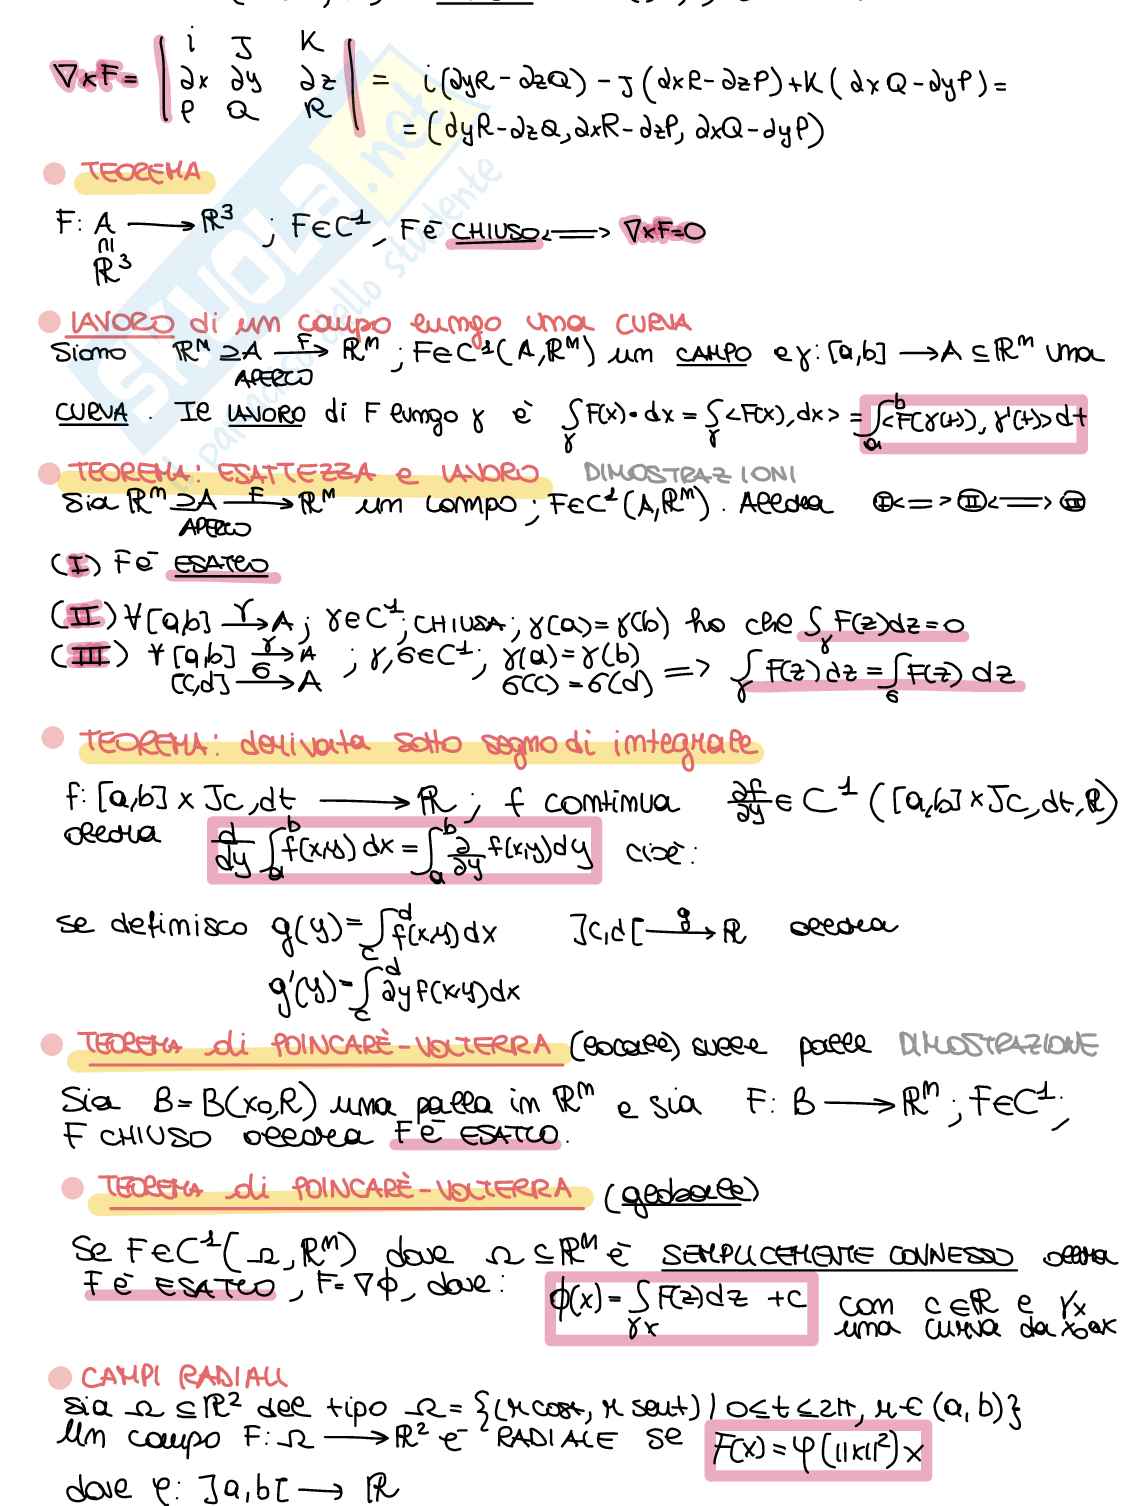 i J K
∇×F= | ∂x ∂y ∂z | = i(∂yR-∂zQ) - J(∂xR-∂zP)+K(∂xQ-∂yP)=
P Q R
=(∂yR-∂zQ, ∂xR-∂zP, ∂xQ-∂yP)
TEOREMA
F: A ⟶ ℝ³ ; F∈C¹, F è CHIUSO <==> ∇×F=0
⊆
ℝ³
LAVORO di un campo lungo una CURVA
Siano ℝᴹ ⊇A –F→ ℝᴹ ; F∈C¹(A,ℝᴹ) un CAMPO e γ:[a,b] ⟶A ⊆ℝᴹ una
APERTO
CURVA. Il LAVORO di F lungo γ è ∫γ F(x)•dx = ∫γ <F(x), dx> = ∫ₐᵇ <F(γ(t)), γ'(t)> dt
TEOREMA: ESATTEZZA e LAVORO DIMOSTRAZIONI
Sia ℝᵐ ⊇A –F→ ℝᴹ un campo; F∈C¹(A,ℝᴹ). Allora Ⓘ<=>Ⓘ​Ⓘ<==>Ⓘ​Ⓘ​Ⓘ
APERTO
(I) F è ESATTO
(II) ∀[a,b] –γ→ A; γ∈C¹; CHIUSA; γ(a)=γ(b) ho che ∫γ F(z)dz=0
(III) ∀[a,b] –γ→ A ; γ,σ∈C¹; γ(a)=γ(b) => ∫γ F(z)dz = ∫σ F(z)dz
[c,d] –σ→ A σ(c)=σ(d)
TEOREMA: derivata sotto segno di integrale
f: [a,b] x ]c,d[ ⟶ ℝ ; f continua ∂f/∂y ∈ C¹([a,b]x]c,d[,ℝ)
allora d/dy ∫ₐᵇ f(x,y)dx = ∫ₐᵇ ∂/∂y f(x,y)dy cioè:
se definisco g(y)=∫_c^d f(x,y)dx ]c,d[ –g→ ℝ allora
g'(y)=∫_c^d ∂yf(x,y)dx
TEOREMA di POINCARÈ-VOLTERRA (locale) sulle palle DIMOSTRAZIONE
Sia B=B(x₀,R) una palla in ℝᴹ e sia F: B ⟶ ℝᴹ ; F∈C¹;
F CHIUSO allora F è ESATTO.
TEOREMA di POINCARÈ-VOLTERRA (globale)
Se F∈C¹(Ω,ℝᴹ) dove Ω ⊆ℝᴹ è SEMPLICEMENTE CONNESSO allora
F è ESATTO, F=∇ϕ, dove: ϕ(x)=∫γx F(z)dz +c con c∈ℝ e γx
una curva da x₀ a x
CAMPI RADIALI
sia Ω⊆ℝ² del tipo Ω={(r cost, r sent) | 0≤t≤2π, r∈(a,b)}
Un campo F:Ω ⟶ ℝ² è RADIALE se F(x)=φ(||x||²)x
dove φ: ]a,b[ ⟶ ℝ